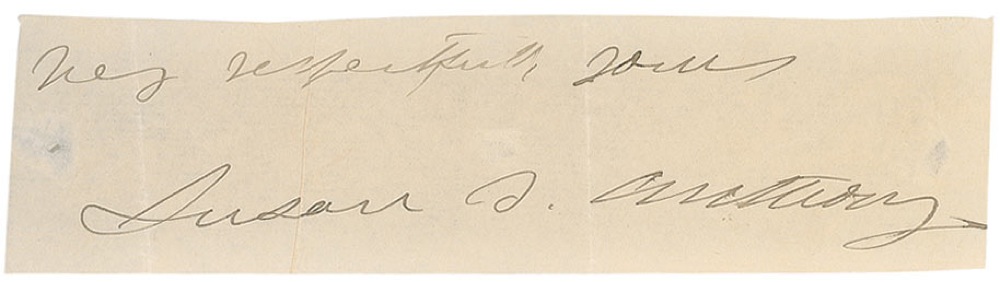 Very respectfully yours
Susan B. Anthony